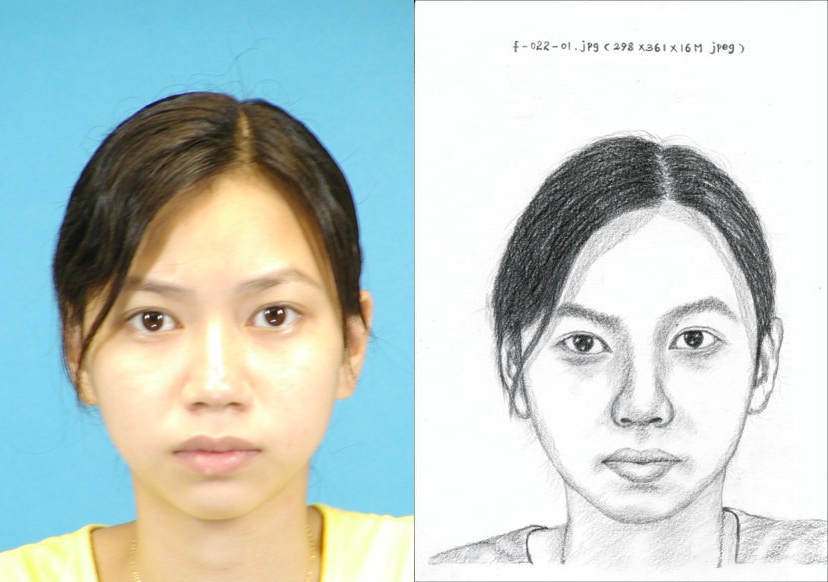 f-022-01.jpg (298 x361x16M jpeg)